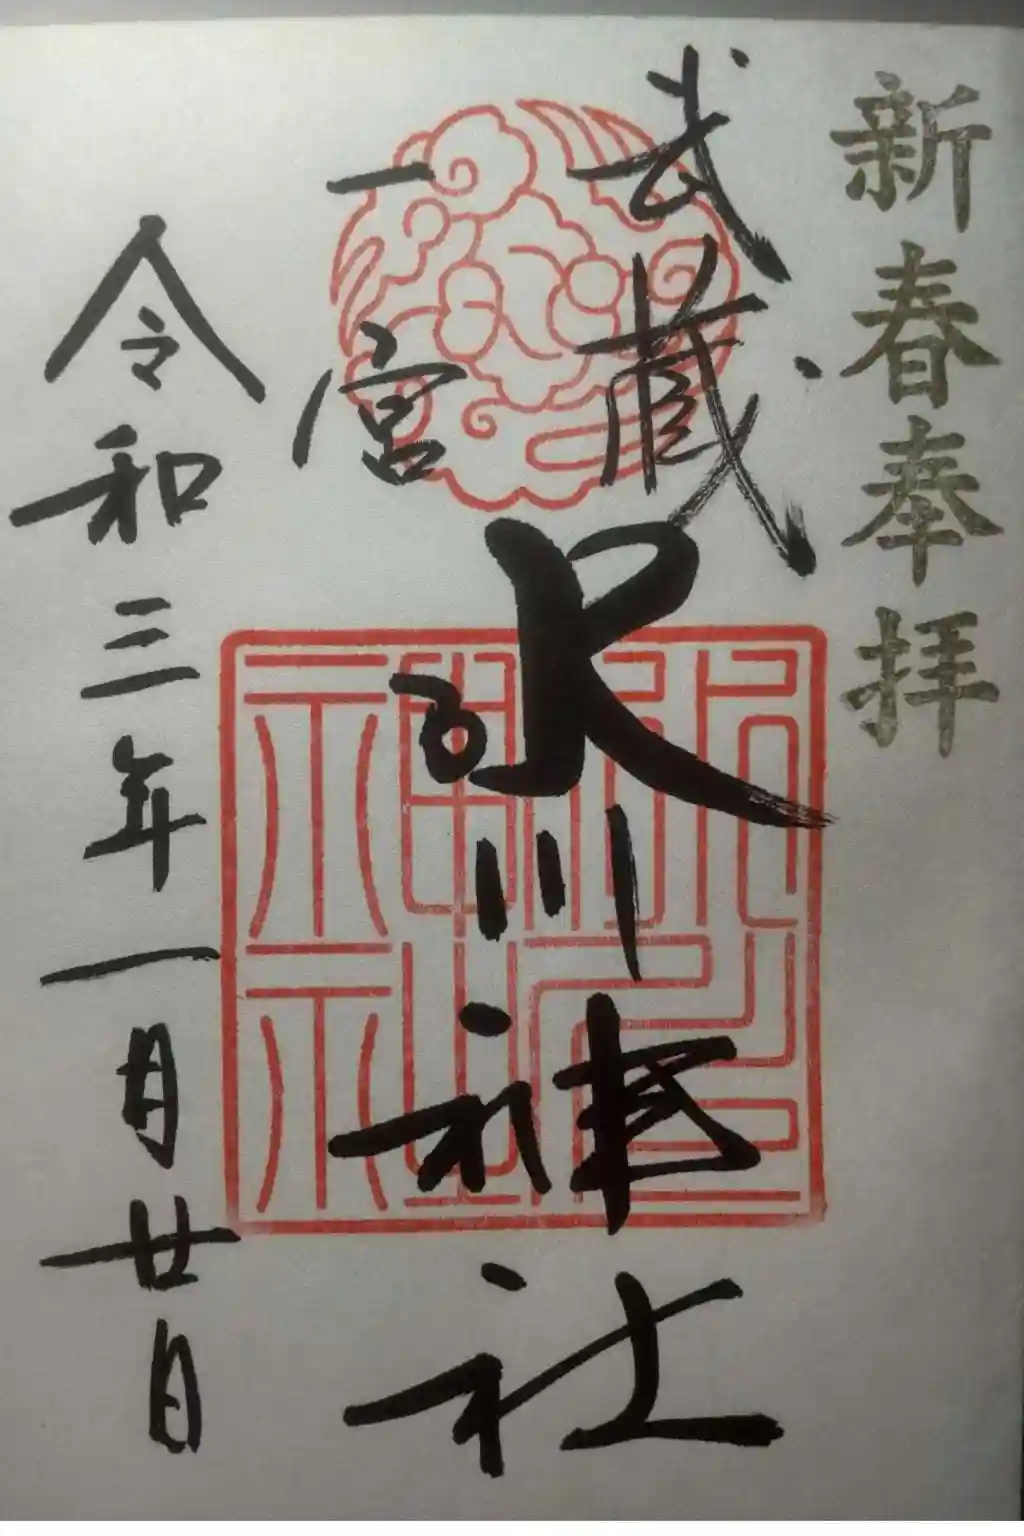 新春奉拝
武蔵
一宮
氷川神社
氷川
神社
令和三年一月廿日